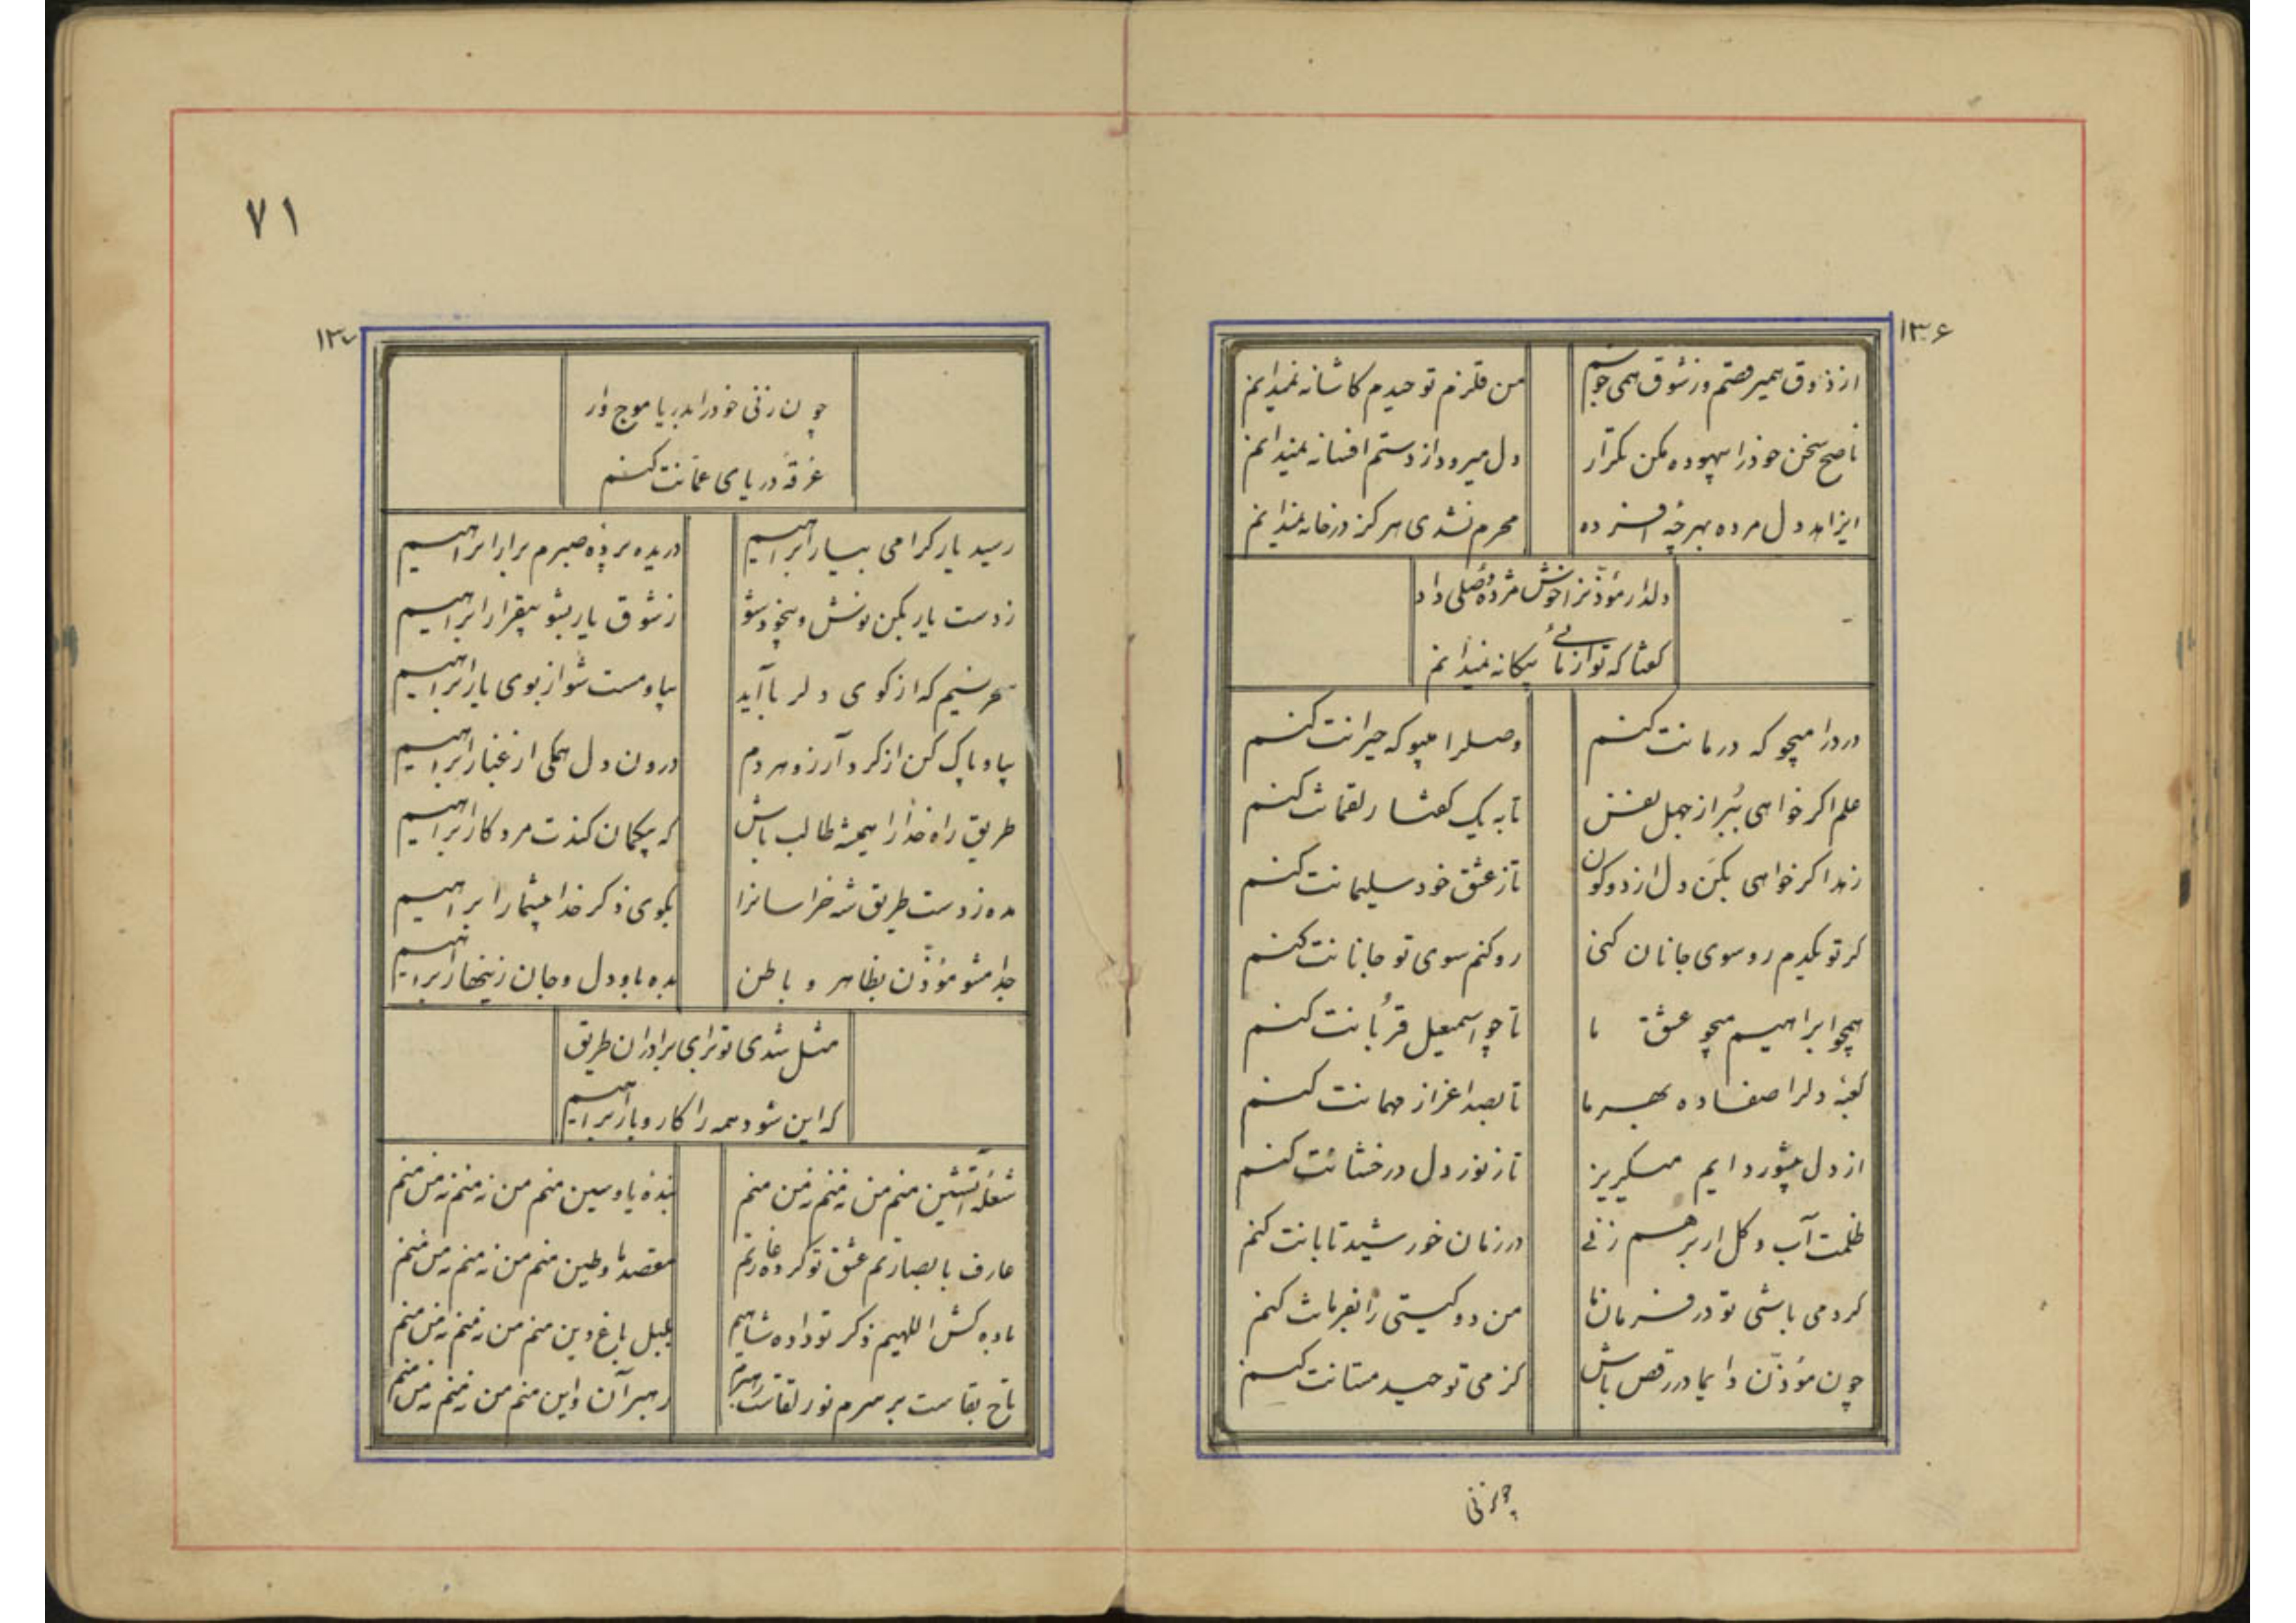 ۱۳۶
از ذوق همیرقصم وز شوق همی جوشم
من قلزم توحیدم کاشانه نمیدانم
ناصح سخن خودرا بیهوده مکن تکرار
دل میرود از دستم افسانه نمیدانم
ایزاهد دل مرده بهرچه افسرده
محرم نشدی هرکز درخانه نمیدانم
دلدار مؤذنرا خوش مژدۀ وصلی داد
کفتا که تو از مائی بیکانه نمیدانم
دردرا میجو که درمانت کنم
وصلرا میپو که حیرانت کنم
علم اکر خواهی ببر از جهل نفس
تا به یک کفتار لقمانت کنم
زهد اکر خواهی بکن دل از دو کون
تا ز عشق خود سلیمانت کنم
کر تو یکدم رو سوی جانان کنی
رو کنم سوی تو جانانت کنم
همچو ابراهیم میجو عشق ما
تا چو اسمعیل قربانت کنم
کعبۀ دلرا صفا ده بهر ما
تا بصد اعزاز مهمانت کنم
از دل پرشور دایم میکریز
تا ز نور دل درخشانت کنم
ظلمت آب و کل ار برهم زنی
در زمان خورشید تابانت کنم
کر دمی باشی تو در فرمان ما
من دو کیتی را بفرمانت کنم
چون مؤذن دایما در رقص باش
کز می توحید مستانت کنم
چون زنی
۷۱
۱۳۷
چون زنی خودرا بدریا موج وار
غرقۀ دریای عمانت کنم
رسید یار کرامی بیار ابراهیم
دریده پردۀ صبرم برار ابراهیم
ز دست یار بکن نوش و بیخود شو
ز شوق یار بشو بیقرار ابراهیم
سحر نسیم که از کوی دلربا آید
بیا و مست شو از بوی یار ابراهیم
بیا و پاک کن از کرد آرزو هر دم
درون دل همکی از غبار ابراهیم
طریق راه خدارا همیشه طالب باش
که بیکمان کندت مرد کار ابراهیم
مده ز دست طریق شه خراسانرا
بکوی ذکر خدا بیشمار ابراهیم
جدا مشو مؤذن بظاهر و باطن
بده باو دل و جان زینهار ابراهیم
مثل شدی تو برای برادران طریق
که این شود همه را کاروبار ابراهیم
شعلۀ آتشین منم من نه منم نه من منم
بندۀ یا و سین منم من نه منم نه من منم
عارف بابصارتم عشق تو کرده غارتم
مقصد ما و طین منم من نه منم نه من منم
باده کش اللهیم ذکر تو داده شاهیم
بلبل باغ دین منم من نه منم نه من منم
تاج بقاست بر سرم نور لقاست رهبرم
رهبر آن و این منم من نه منم نه من منم